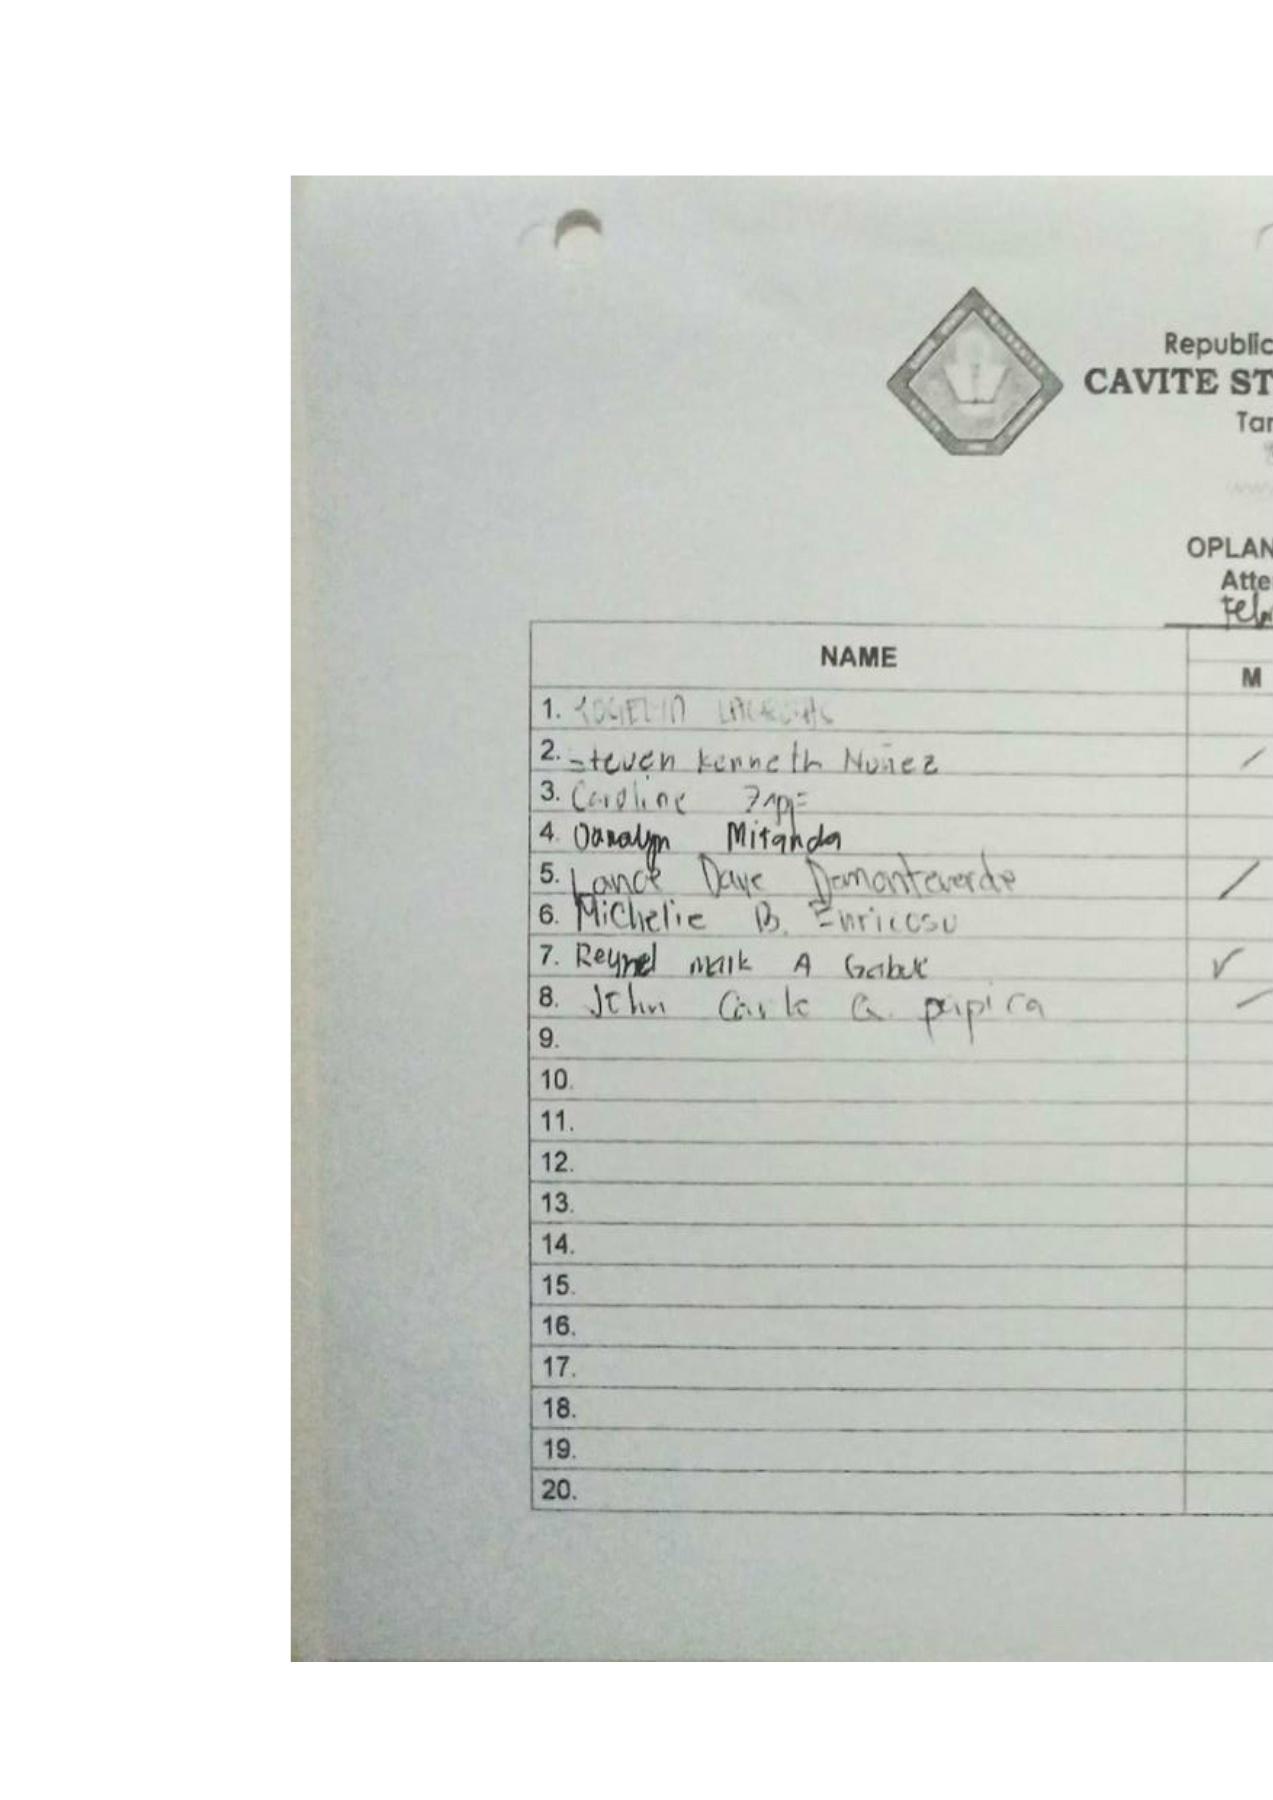 Republic
CAVITE ST
Tan
OPLAN
Atte
Feb
NAME
M
1.
2. Steven Kenneth Nuñez
3. Caroline
4. Miranda
5. Lance Dave Demonteverde
6. Michelle B. Enricoso
7. Reynel Mark A Gabuc
8. John Carlo G. papira
9.
10.
11.
12.
13.
14.
15.
16.
17.
18.
19.
20.